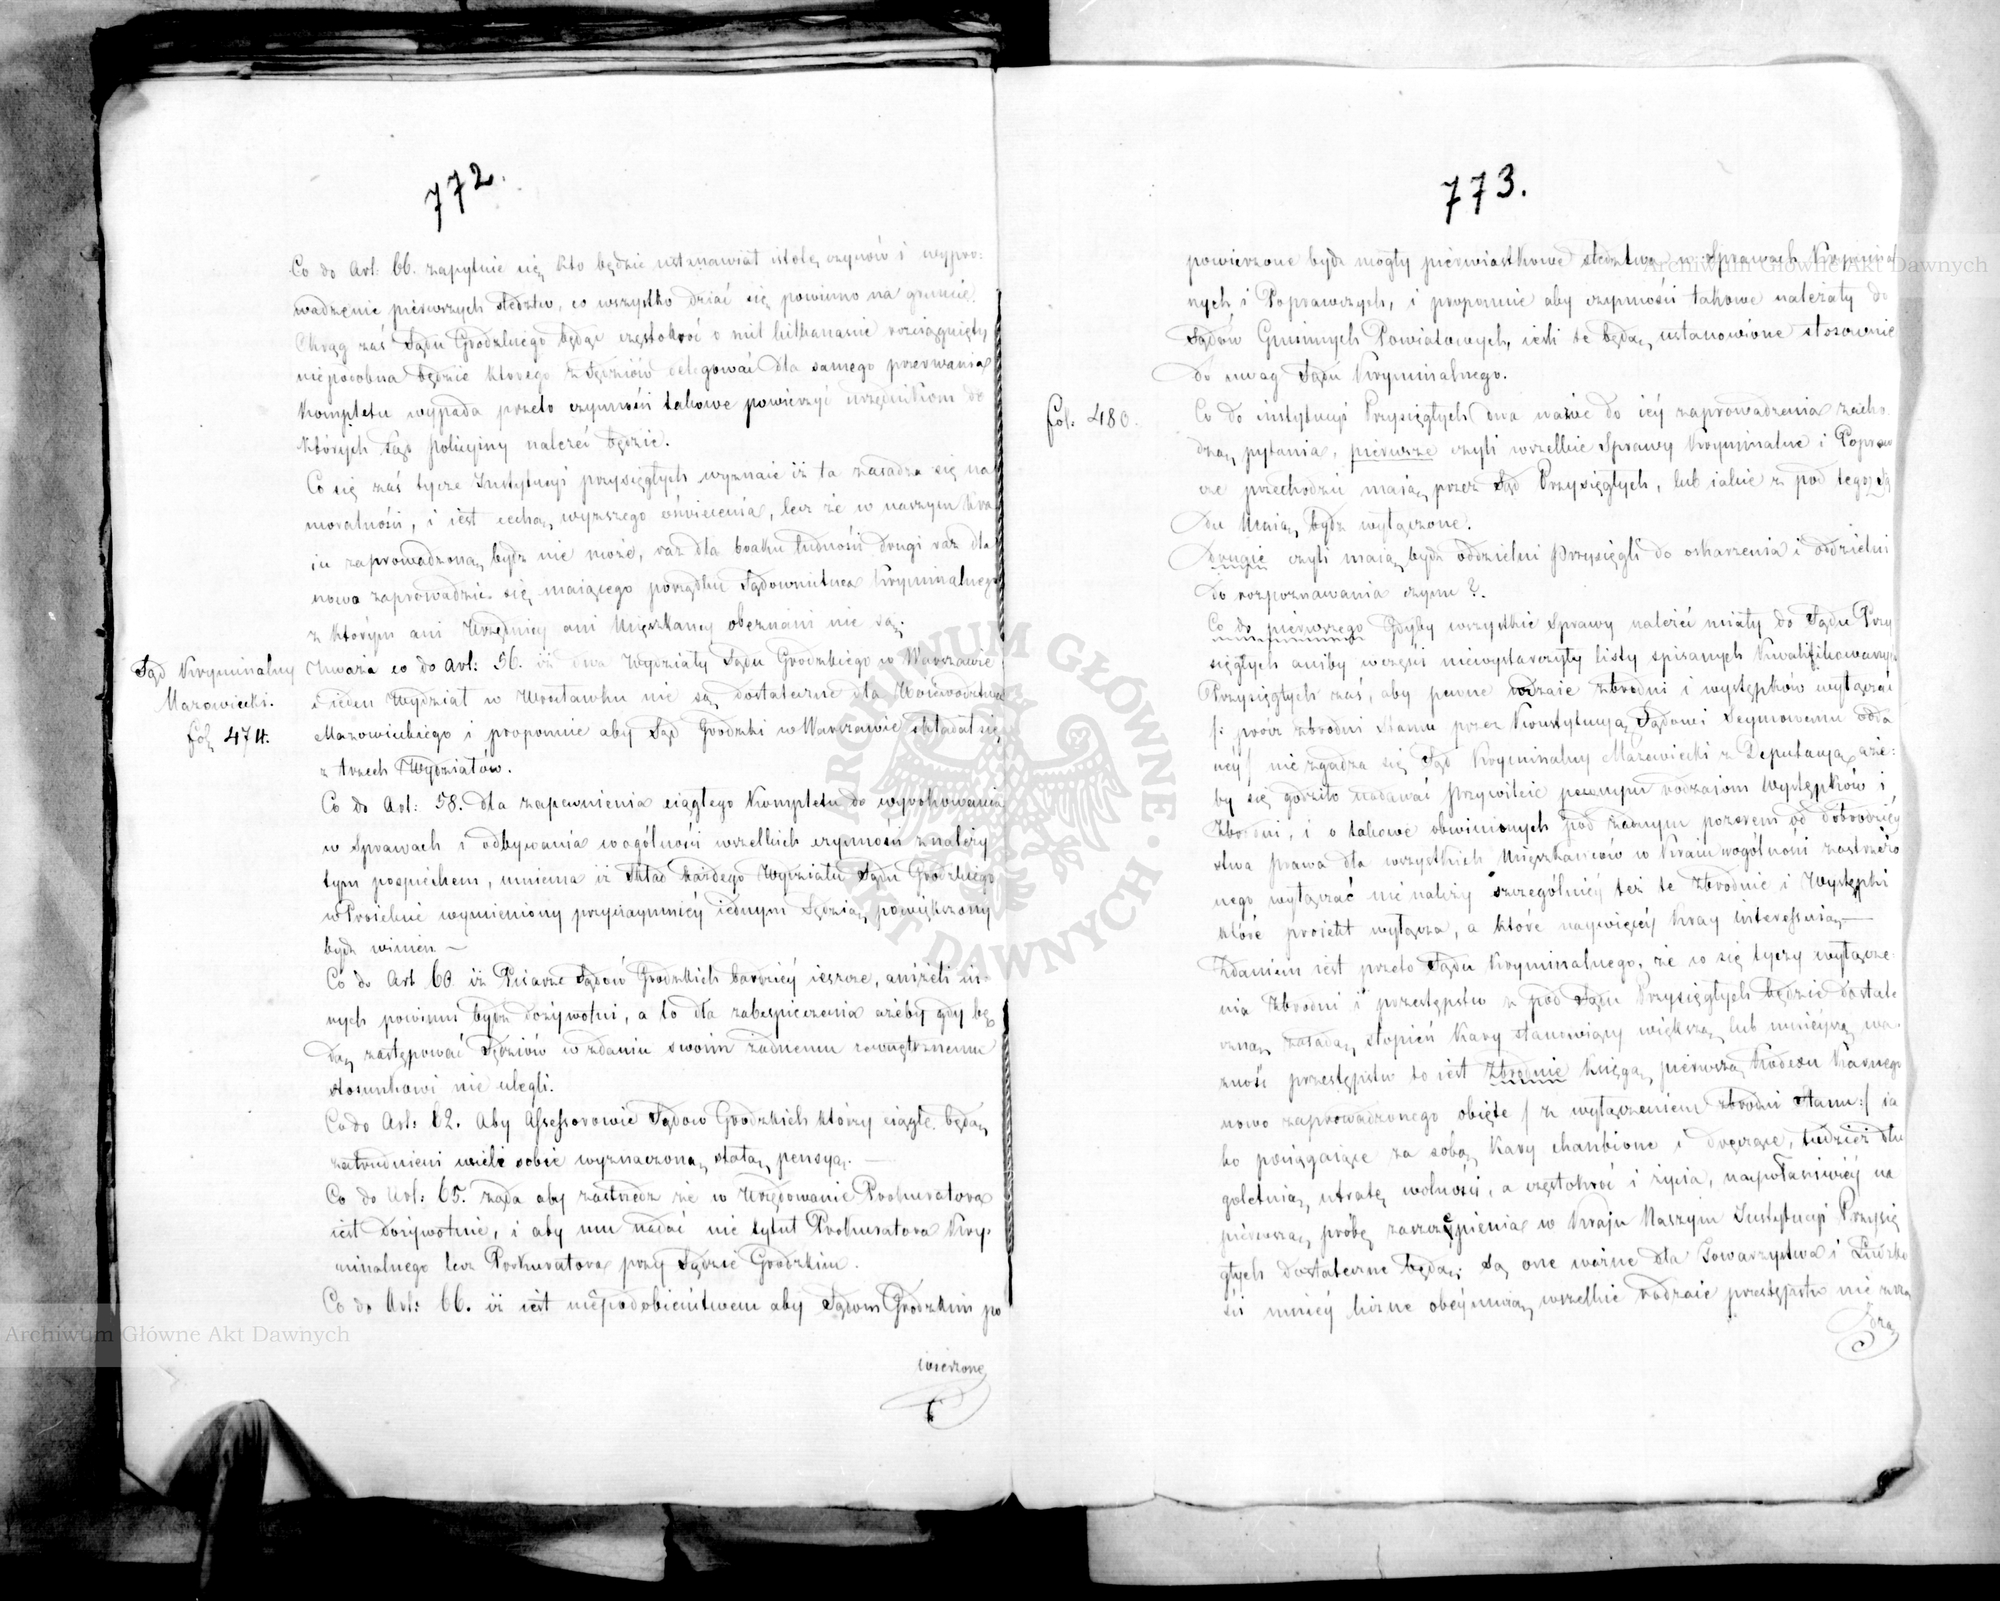 772.
Co do Art: 66. zapytuie się kto będzie uznawiał istotę czynów i wypro:
wadzenie pierwszych śledztw, co wszystko dziać się powinno na gruncie.
Okrąg zaś Sądu Grodzkiego będąc częstokroć o mil kilkanaście rozciągnięty,
niepodobna będzie którego z Sędziów delegować dla samego przerwania
Kompletu wypada przeto czynności takowe powierzyć urzędnikom do
których Sąd policyiny należeć będzie.
Co się zaś tycze Instytucyi przysięgłych wyznaie iż ta zasadza się na
moralności, i iest cechą wyższego oświecenia, lecz że w naszym Kra
iu zaprowadzoną bydz nie może, raz dla braku ludności drugi raz dla
nowo zaprowadzić się maiącego porządku Sądownictwa Kryminalnego
z którym ani Urzędnicy ani Mieszkańcy obeznani nie są.
Sąd Kryminalny
Mazowiecki.
fol. 474.
Uważa co do Art: 56. iż dwa Wydziały Sądu Grodzkiego w Warszawie
i ieden Wydział w Wrocławku nie są dostateczne dla Woiewództwa
Mazowieckiego i proponuie aby Sąd Grodzki w Warszawie składał się
z trzech Wydziałów.
Co do Art: 58. dla zapewnienia ciągłego Kompletu do wyrokowania
w Sprawach i odbywania w ogólności wszelkich czynności z należy
tym pospiechem, mniema iż Skład każdego Wydziału Sądu Grodzkiego
w Proiekcie wymieniony przynaymniéy iednym Sędzią powiększony
bydz winien —
Co do Art 60 iż Pisarze Sądów Grodzkich bardziéy ieszcze, aniżeli in-
nych powinni bydz dożywotni, a to dla zabespieczenia ażeby gdy bę
dą zastępować Sędziów w zdaniu swoim żadnemu zewnętrznemu
stosunkowi nie ulegli.
Co do Art: 62. Aby Assessorowie Sądów Grodzkich którzy ciągle będą
zatrudnieni mieli sobie wyznaczoną stałą pensyą. —
Co do Art: 65. żąda aby zastrzedz że w Urzędowanie Prokuratora
iest dożywotnie, i aby mu nadać nie tytuł Prokuratora Kry-
minalnego lecz Prokuratora przy Sądzie Grodzkim.
Co do Art: 66. iż iest niepodobieństwem aby Sądom Grodzkim po
wierzone
773.
powierzone bydz mogły pierwiastkowe śledztwa w Sprawach Kryminal
nych i Poprawczych, i proponuie aby czynności takowe należały do
Sądów Gminnych Powiatowych, iesli te będą ustanowione stosownie
do uwag Sądu Kryminalnego.
fol. 480.
Co do instytucyi Przysięgłych dwa ważne do iéy zaprowadzenia zacho
dzą pytania, pierwsze czyli wszelkie Sprawy Kryminalne i Popraw
cze przechodzić maią przez Sąd Przysięgłych, lub iakie z pod tego Są
du Maią bydz wyłączone.
drugie czyli maią bydz oddzielni Przysięgli do oskarżenia i oddzielni
do rozpoznawania czynu?.
Co do pierwszego Gdyby wszystkie Sprawy należeć miały do Sądu Przy
sięgłych aniby w części niewystarczyły listy spisanych Kwalifikowanych
Przysięgłych zaś, aby pewne rodzaie zbrodni i występków wyłączać
/: prócz zbrodni Stanu przez Konstytucyą Sądowi Seymowemu odda
néy / nie zgadza się Sąd Kryminalny Mazowiecki z Deputacyą aże:
by się godziło nadawać przywileie pewnym rodzaiom Występków i
Zbrodni, i o takowe obwinionych pod żadnym pozorem od dobrodziéy
stwa prawa dla wszystkich Mieszkańców w Kraiu wogólności zastrzeżo
nego wyłączać nie należy szczególniéy też te Zbrodnie i Występki
które proiekt wyłącza, a które naywięcéy Kray interessuią —
Zdaniem iest przeto Sądu Kryminalnego, że co się tyczy wyłącze:
nia Zbrodni i przestępstw z pod Sądu Przysięgłych będzie dostate
czną zasadą stopień Kary stanowiący większą lub mnieyszą wa-
żność przestępstw to iest Zbrodnie Księgą pierwszą Kodexu Karnego
nowo zaprowadzonego obięte / z wyłączeniem zbrodni Stanu:/ ia
ko pociągaiące za sobą Kary chanbiące i dręczące, tudzież dłu
goletnią utratę wolności, a częstokroć i życia, naywłaściwiéy na
pierwszą próbę zaszczepienia w Kraju Naszym Instytucyi Przysię
głych dostateczne będą; są one ważne dla Towarzystwa i Ludzko
ści mniéy liczne obeymuią wszelkie rodzaie przestępstw nie zra
dzą
Archiwum Główne Akt Dawnych
Archiwum Główne Akt Dawnych
ARCHIWUM GŁÓWNE · AKT DAWNYCH ·